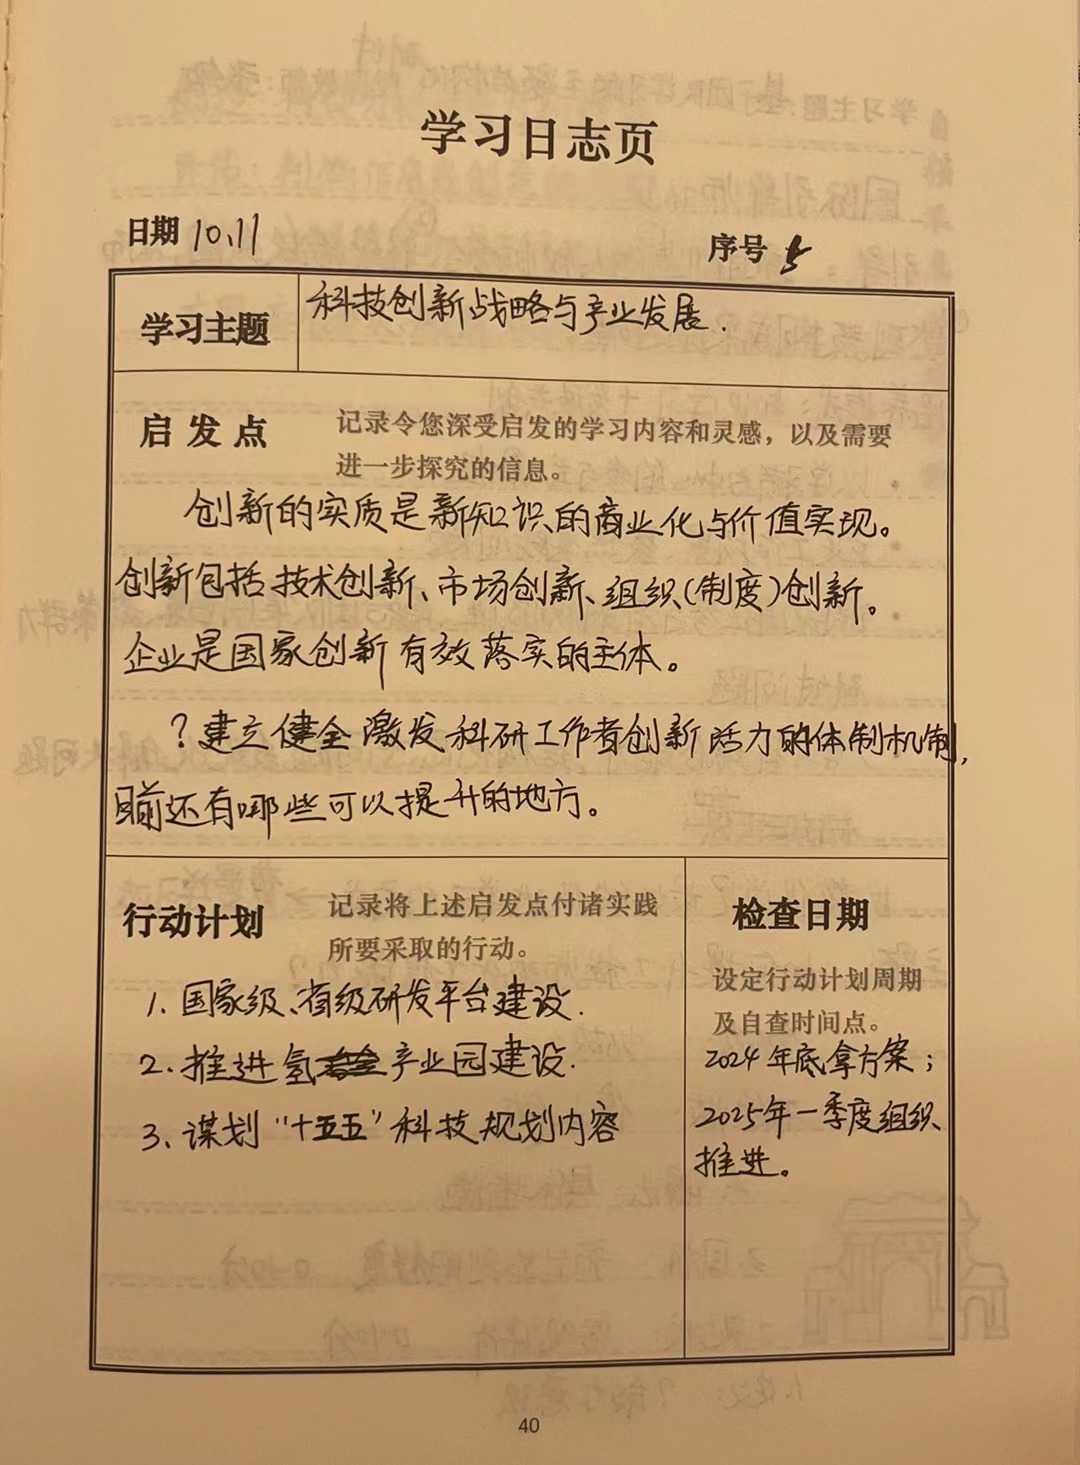 学习日志页
日期 10.11
序号
学习主题 科技创新战略与产业发展.
启发点 记录令您深受启发的学习内容和灵感，以及需要
进一步探究的信息。
创新的实质是新知识的商业化与价值实现。
创新包括技术创新、市场创新、组织(制度)创新。
企业是国家创新有效落实的主体。
？建立健全激发科研工作者创新活力的体制机制，
目前还有哪些可以提升的地方。
行动计划 记录将上述启发点付诸实践
所要采取的行动。
1. 国家级、省级研发平台建设.
2. 推进氢产业园建设.
3、谋划"十五五"科技规划内容
检查日期
设定行动计划周期
及自查时间点。
2024年底拿方案；
2025年一季度组织
推进。
40